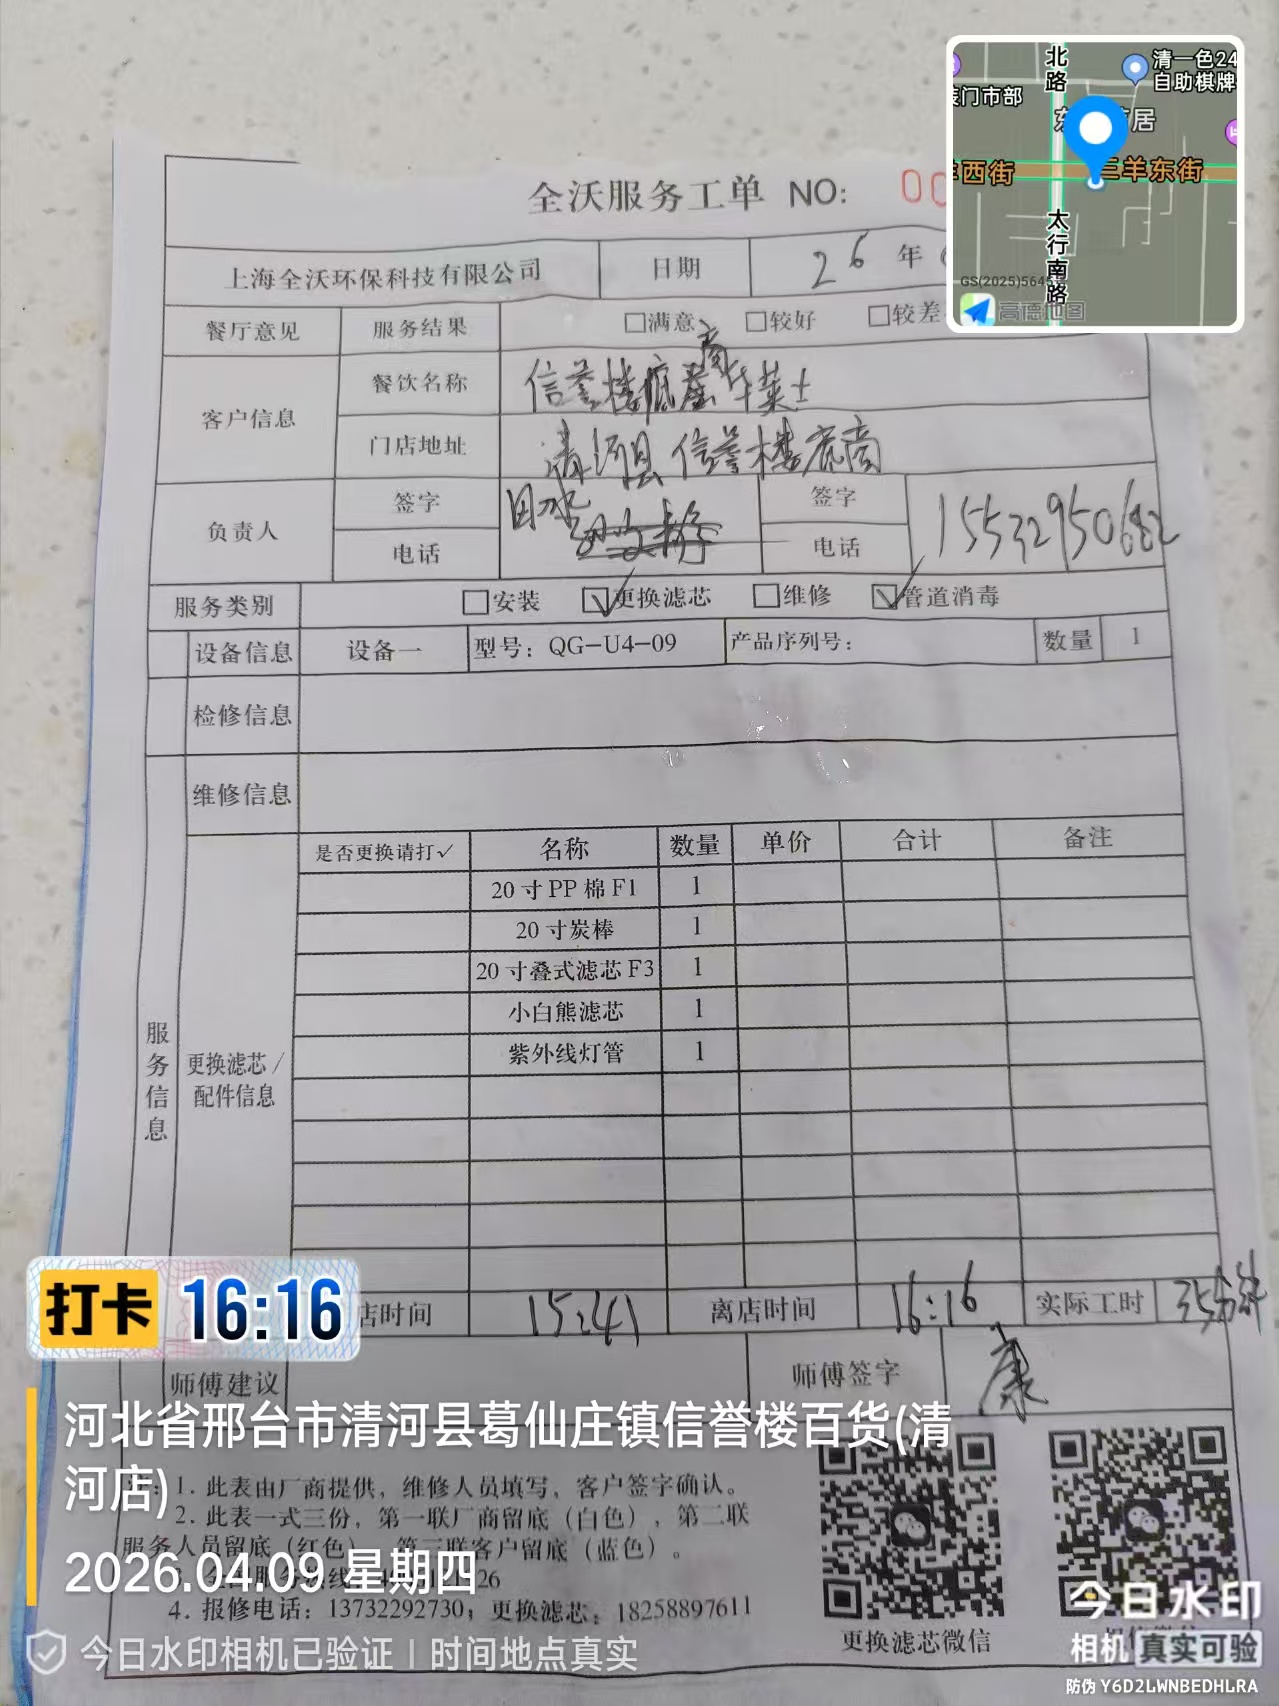 清一色24
自助棋牌
北路
装门市部
羊西街
三羊东街
太行南路
GS(2025)5645号
高德地图
全沃服务工单 NO: 00
上海全沃环保科技有限公司 日期 26年
餐厅意见 服务结果 □满意 □较好 □较差
客户信息 餐饮名称 信誉楼底商牛莱士
门店地址 清河县信誉楼底商
负责人 签字 签字
电话 电话 15532950682
服务类别 □安装 ☑更换滤芯 □维修 ☑管道消毒
设备信息 设备一 型号：QG-U4-09 产品序列号： 数量 1
检修信息
维修信息
服务信息
更换滤芯/
配件信息
是否更换请打✓ 名称 数量 单价 合计 备注
20寸PP棉F1 1
20寸炭棒 1
20寸叠式滤芯F3 1
小白熊滤芯 1
紫外线灯管 1
店时间 15:41 离店时间 16:16 实际工时 35分钟
师傅建议 师傅签字 康
打卡 16:16
河北省邢台市清河县葛仙庄镇信誉楼百货(清
河店)
2026.04.09 星期四
1. 此表由厂商提供，维修人员填写，客户签字确认。
2. 此表一式三份，第一联厂商留底（白色），第二联
服务人员留底（红色），第三联客户留底（蓝色）。
4. 报修电话：13732292730；更换滤芯：18258897611
更换滤芯微信
今日水印相机已验证 | 时间地点真实
今日水印
相机 真实可验
防伪 Y6D2LWNBEDHLRA